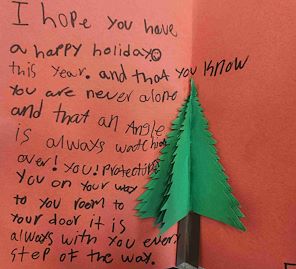 I hope you have
a happy holiday
this year. and that you know
You are never alone
and that an Angle
is always watching
over! you! protecting
you on your way
to you room to
your door it is
always with you every
step of the way.